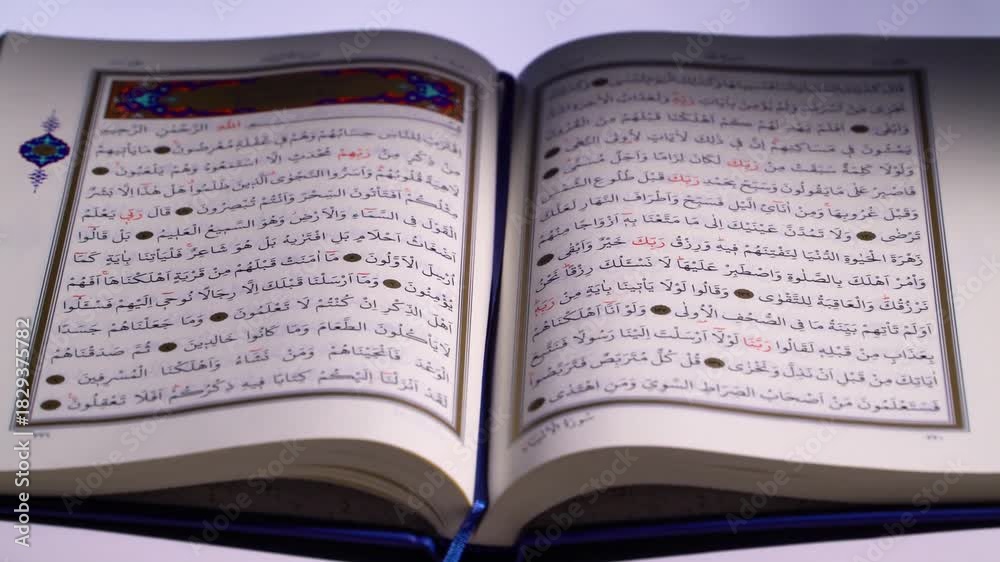 وَاَبْقٰى اَفَلَمْ يَهْدِ لَهُمْ كَمْ اَهْلَكْنَا قَبْلَهُمْ مِنَ الْقُرُونِ
يَمْشُونَ فِى مَسَاكِنِهِمْ اِنَّ فِى ذٰلِكَ لَاٰيَاتٍ لِاُولِى النُّهٰى
وَلَوْلَا كَلِمَةٌ سَبَقَتْ مِنْ رَبِّكَ لَكَانَ لِزَامًا وَاَجَلٌ مُسَمًّى
فَاصْبِرْ عَلٰى مَايَقُولُونَ وَسَبِّحْ بِحَمْدِ رَبِّكَ قَبْلَ طُلُوعِ الشَّمْسِ
وَقَبْلَ غُرُوبِهَا وَمِنْ اٰنَاۤئِ الَّيْلِ فَسَبِّحْ وَاَطْرَافَ النَّهَارِ لَعَلَّكَ
تَرْضٰى وَلَا تَمُدَّنَّ عَيْنَيْكَ اِلٰى مَا مَتَّعْنَا بِهٖ اَزْوَاجًا مِنْهُمْ
زَهْرَةَ الْحَيٰوةِ الدُّنْيَا لِنَفْتِنَهُمْ فِيهِ وَرِزْقُ رَبِّكَ خَيْرٌ وَاَبْقٰى
وَأْمُرْ اَهْلَكَ بِالصَّلٰوةِ وَاصْطَبِرْ عَلَيْهَا لَا نَسْـَٔلُكَ رِزْقًا نَحْنُ
نَرْزُقُكَ وَالْعَاقِبَةُ لِلتَّقْوٰى وَقَالُوا لَوْلَا يَأْتِينَا بِاٰيَةٍ مِنْ رَبِّهٖ
اَوَلَمْ تَأْتِهِمْ بَيِّنَةُ مَا فِى الصُّحُفِ الْاُولٰى وَلَوْ اَنَّا اَهْلَكْنَاهُمْ
بِعَذَابٍ مِنْ قَبْلِهٖ لَقَالُوا رَبَّنَا لَوْلَا اَرْسَلْتَ اِلَيْنَا رَسُولًا فَنَتَّبِعَ
اٰيَاتِكَ مِنْ قَبْلِ اَنْ نَذِلَّ وَنَخْزٰى قُلْ كُلٌّ مُتَرَبِّصٌ فَتَرَبَّصُوا
فَسَتَعْلَمُونَ مَنْ اَصْحَابُ الصِّرَاطِ السَّوِىِّ وَمَنِ اهْتَدٰى
سُورَةُ الْاَنْبِيَاءِ
اللّٰهِ الرَّحْمٰنِ الرَّحِيمِ
اِقْتَرَبَ لِلنَّاسِ حِسَابُهُمْ وَهُمْ فِى غَفْلَةٍ مُعْرِضُونَ مَايَأْتِيهِمْ
مِنْ ذِكْرٍ مِنْ رَبِّهِمْ مُحْدَثٍ اِلَّا اسْتَمَعُوهُ وَهُمْ يَلْعَبُونَ
لَاهِيَةً قُلُوبُهُمْ وَاَسَرُّوا النَّجْوٰى الَّذِينَ ظَلَمُوا هَلْ هٰذَا اِلَّا بَشَرٌ
مِثْلُكُمْ اَفَتَأْتُونَ السِّحْرَ وَاَنْتُمْ تُبْصِرُونَ قَالَ رَبِّى يَعْلَمُ
الْقَوْلَ فِى السَّمَاءِ وَالْاَرْضِ وَهُوَ السَّمِيعُ الْعَلِيمُ بَلْ قَالُوا
اَضْغَاثُ اَحْلَامٍ بَلِ افْتَرٰيهُ بَلْ هُوَ شَاعِرٌ فَلْيَأْتِنَا بِاٰيَةٍ كَمَا
اُرْسِلَ الْاَوَّلُونَ مَا اٰمَنَتْ قَبْلَهُمْ مِنْ قَرْيَةٍ اَهْلَكْنَاهَا اَفَهُمْ
يُؤْمِنُونَ وَمَا اَرْسَلْنَا قَبْلَكَ اِلَّا رِجَالًا نُوحِى اِلَيْهِمْ فَسْـَٔلُوا
اَهْلَ الذِّكْرِ اِنْ كُنْتُمْ لَا تَعْلَمُونَ وَمَا جَعَلْنَاهُمْ جَسَدًا
لَايَأْكُلُونَ الطَّعَامَ وَمَا كَانُوا خَالِدِينَ ثُمَّ صَدَقْنَاهُمُ
الْوَعْدَ فَاَنْجَيْنَاهُمْ وَمَنْ نَشَاءُ وَاَهْلَكْنَا الْمُسْرِفِينَ
لَقَدْ اَنْزَلْنَا اِلَيْكُمْ كِتَابًا فِيهِ ذِكْرُكُمْ اَفَلَا تَعْقِلُونَ
Adobe Stock | #1829375782